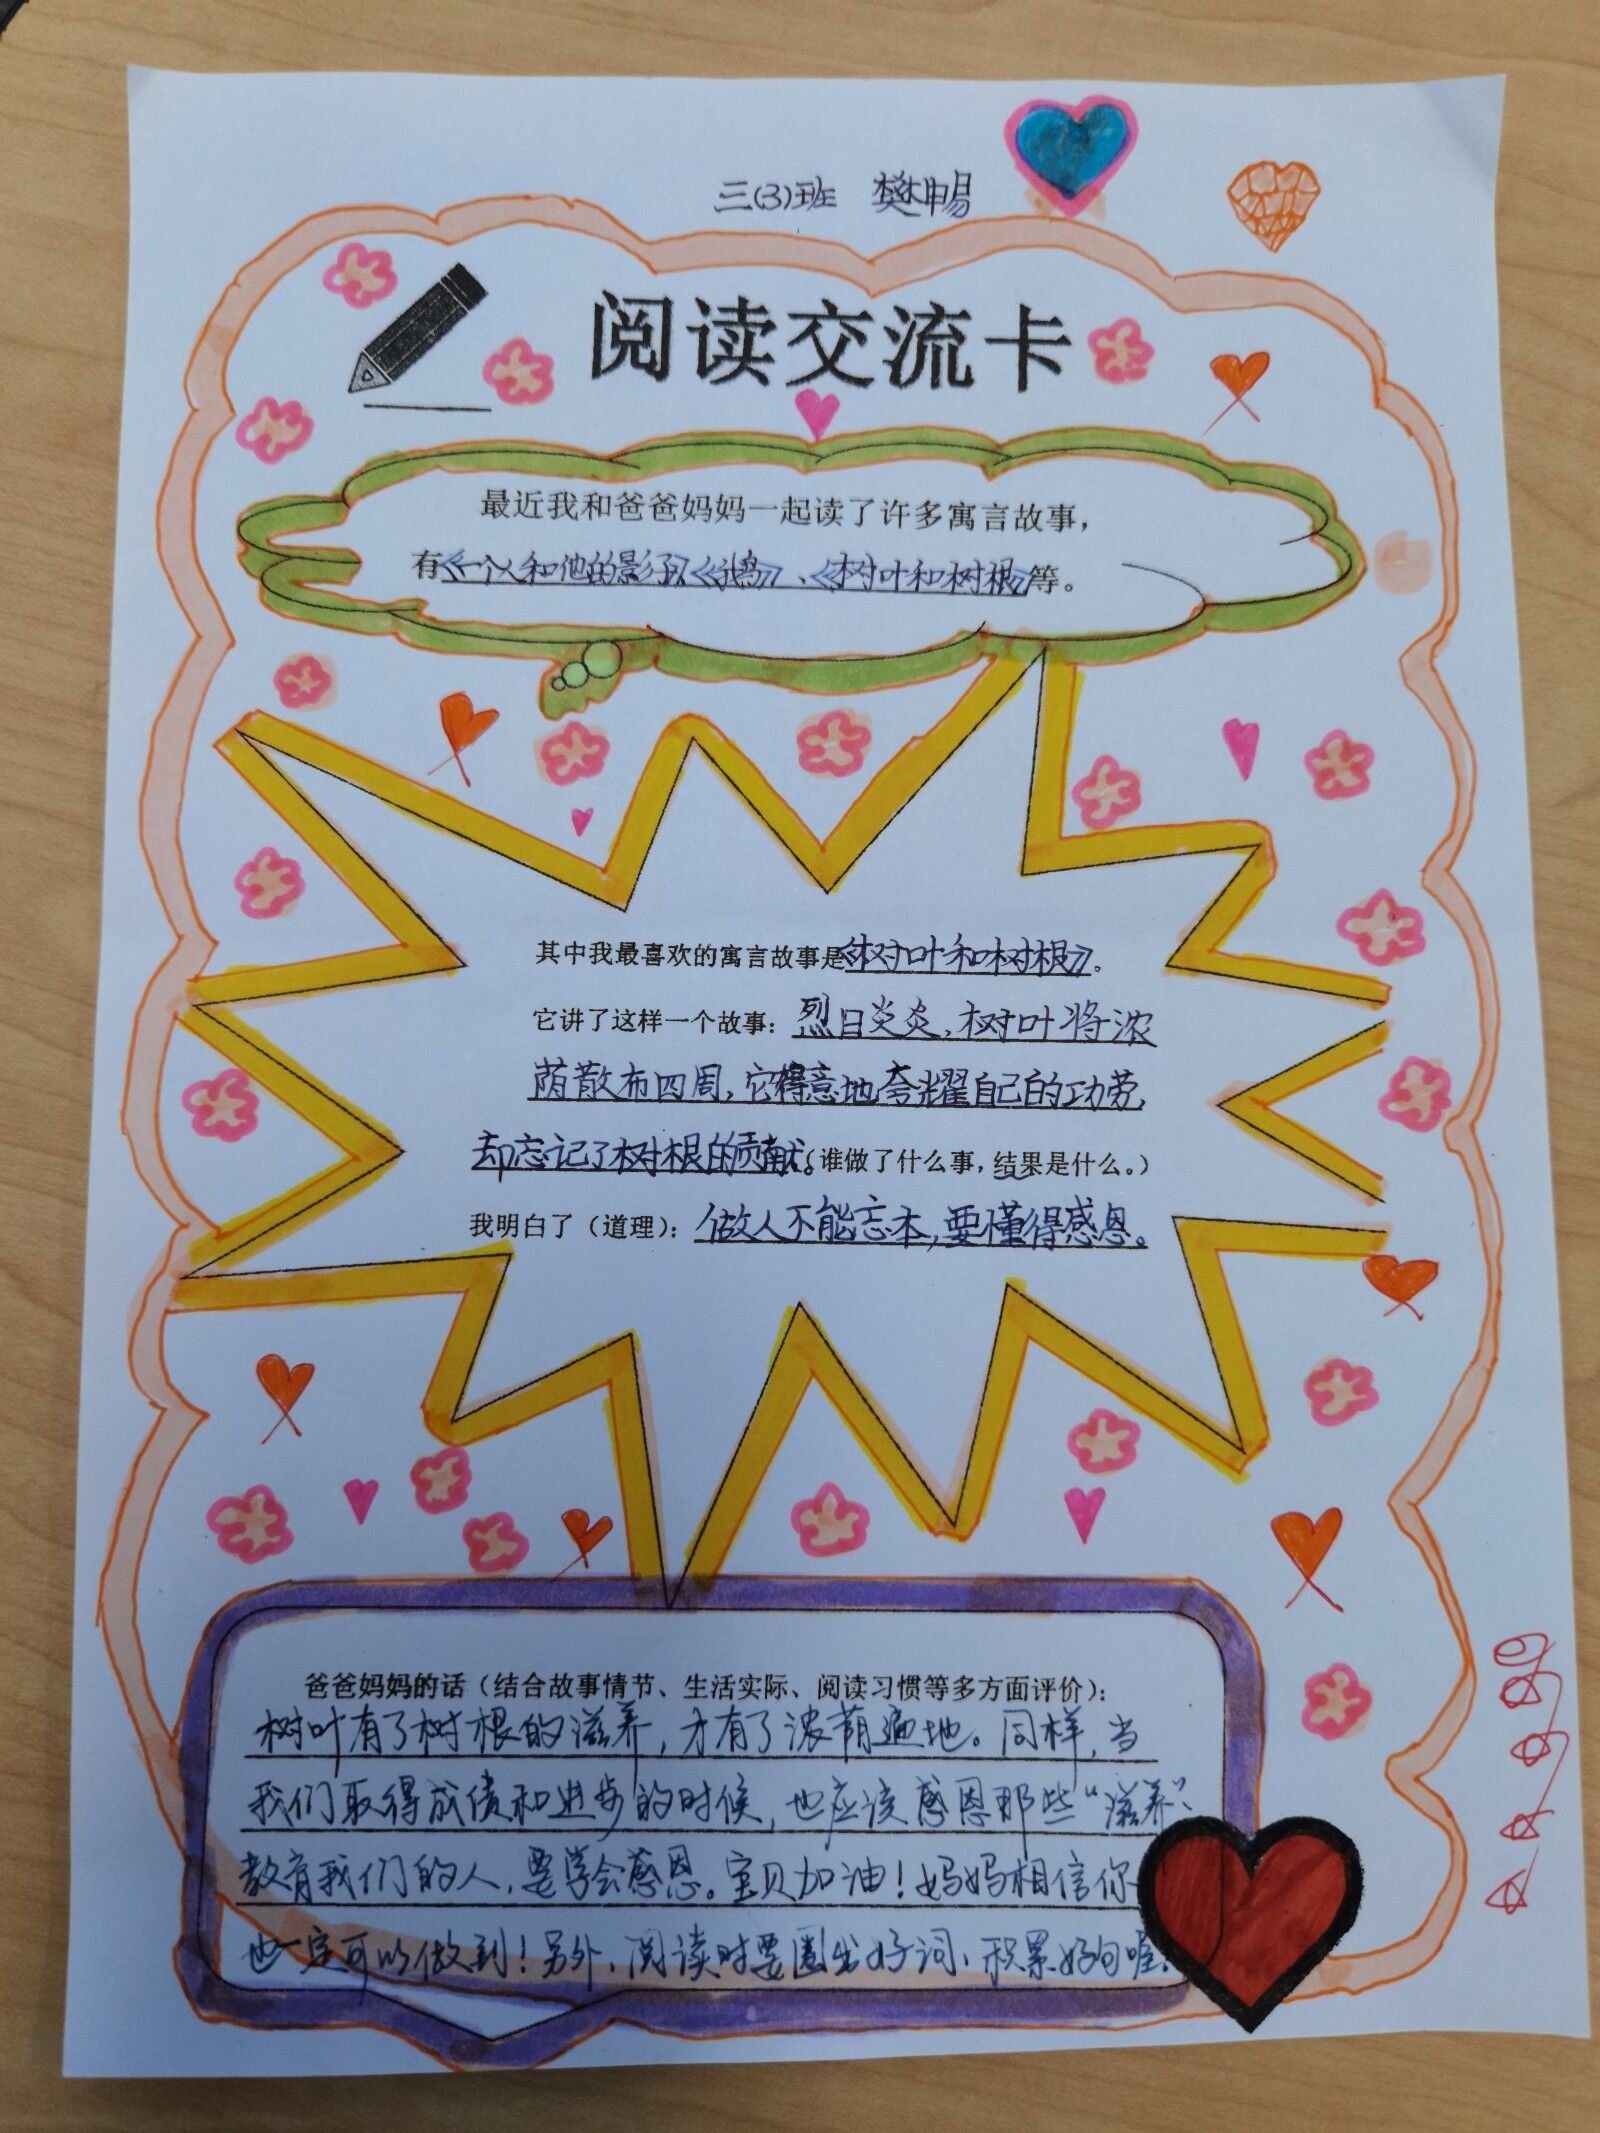 三(3)班 樊申易
阅读交流卡
最近我和爸爸妈妈一起读了许多寓言故事，
有《一个人和他的影子》《鹅》、《树叶和树根》等。
其中我最喜欢的寓言故事是《树叶和树根》。
它讲了这样一个故事：烈日炎炎，树叶将浓
荫散布四周，它得意地夸耀自己的功劳，
却忘记了树根的贡献。（谁做了什么事，结果是什么。）
我明白了（道理）：做人不能忘本，要懂得感恩。
爸爸妈妈的话（结合故事情节、生活实际、阅读习惯等多方面评价）：
树叶有了树根的滋养，才有了浓荫遍地。同样，当
我们取得成绩和进步的时候，也应该感恩那些“滋养”、
教育我们的人，要学会感恩。宝贝加油！妈妈相信你一
也一定可以做到！另外，阅读时要圈出好词、积累好句喔。